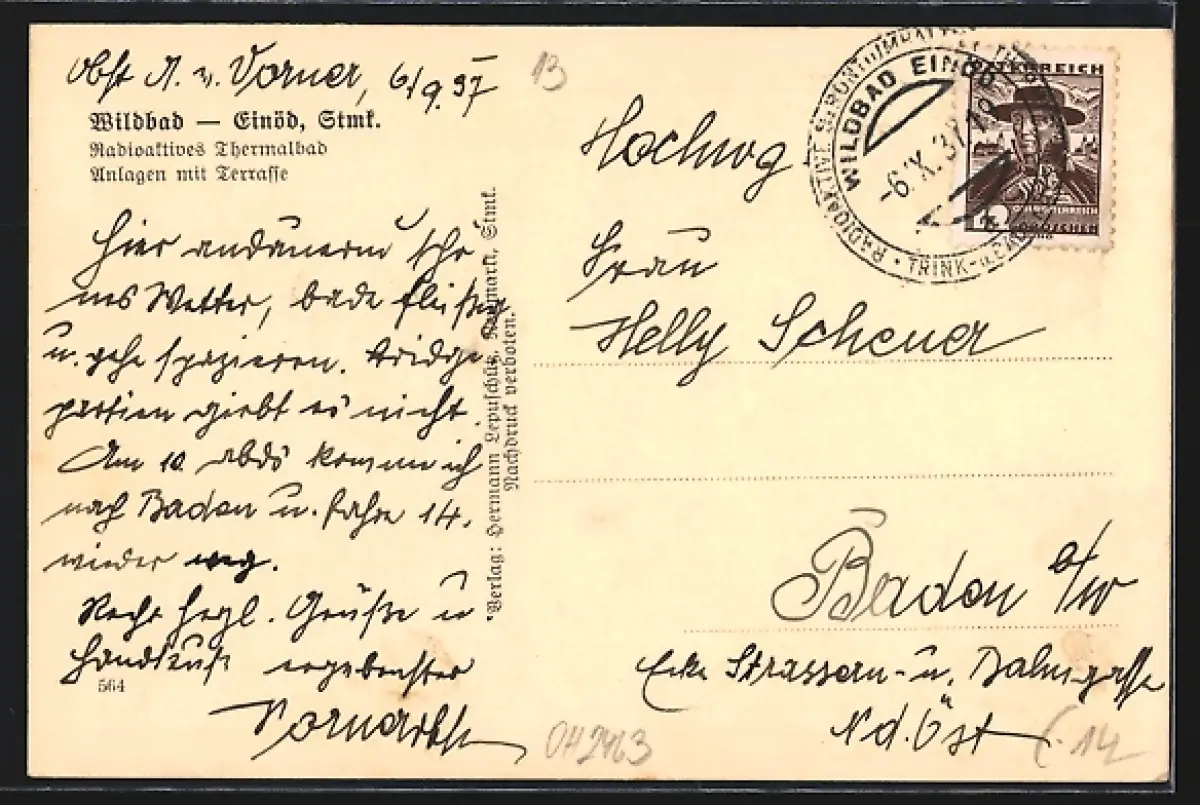 Obst A. v. Vorner, 6/9.37
13
Wildbad — Einöd, Stmk.
Radioaktives Thermalbad
Anlagen mit Terrasse
Hier andauernd schö
nes Wetter, bade fleißig
u. gehe spazieren. Bridge
partien giebt es nicht.
Am 10. abds komme ich
nach Baden u. fahre 14.
wieder weg.
Recht herzl. Grüße u
Handkuß ergebenster
564
Verlag: Hermann Lepuschütz, Neumarkt, Stmk.
Nachdruck verboten.
WILDBAD EINÖD
-6.IX.37.10
RADIOAKTIVE
TRINK- u. BADE
ÖSTERREICH
GROSCHEN
Hochwg
Frau
Helly Scheuer
Baden b/W
Ecke Strassern- u. Bahngasse
Nd. Öst
14
OH2463